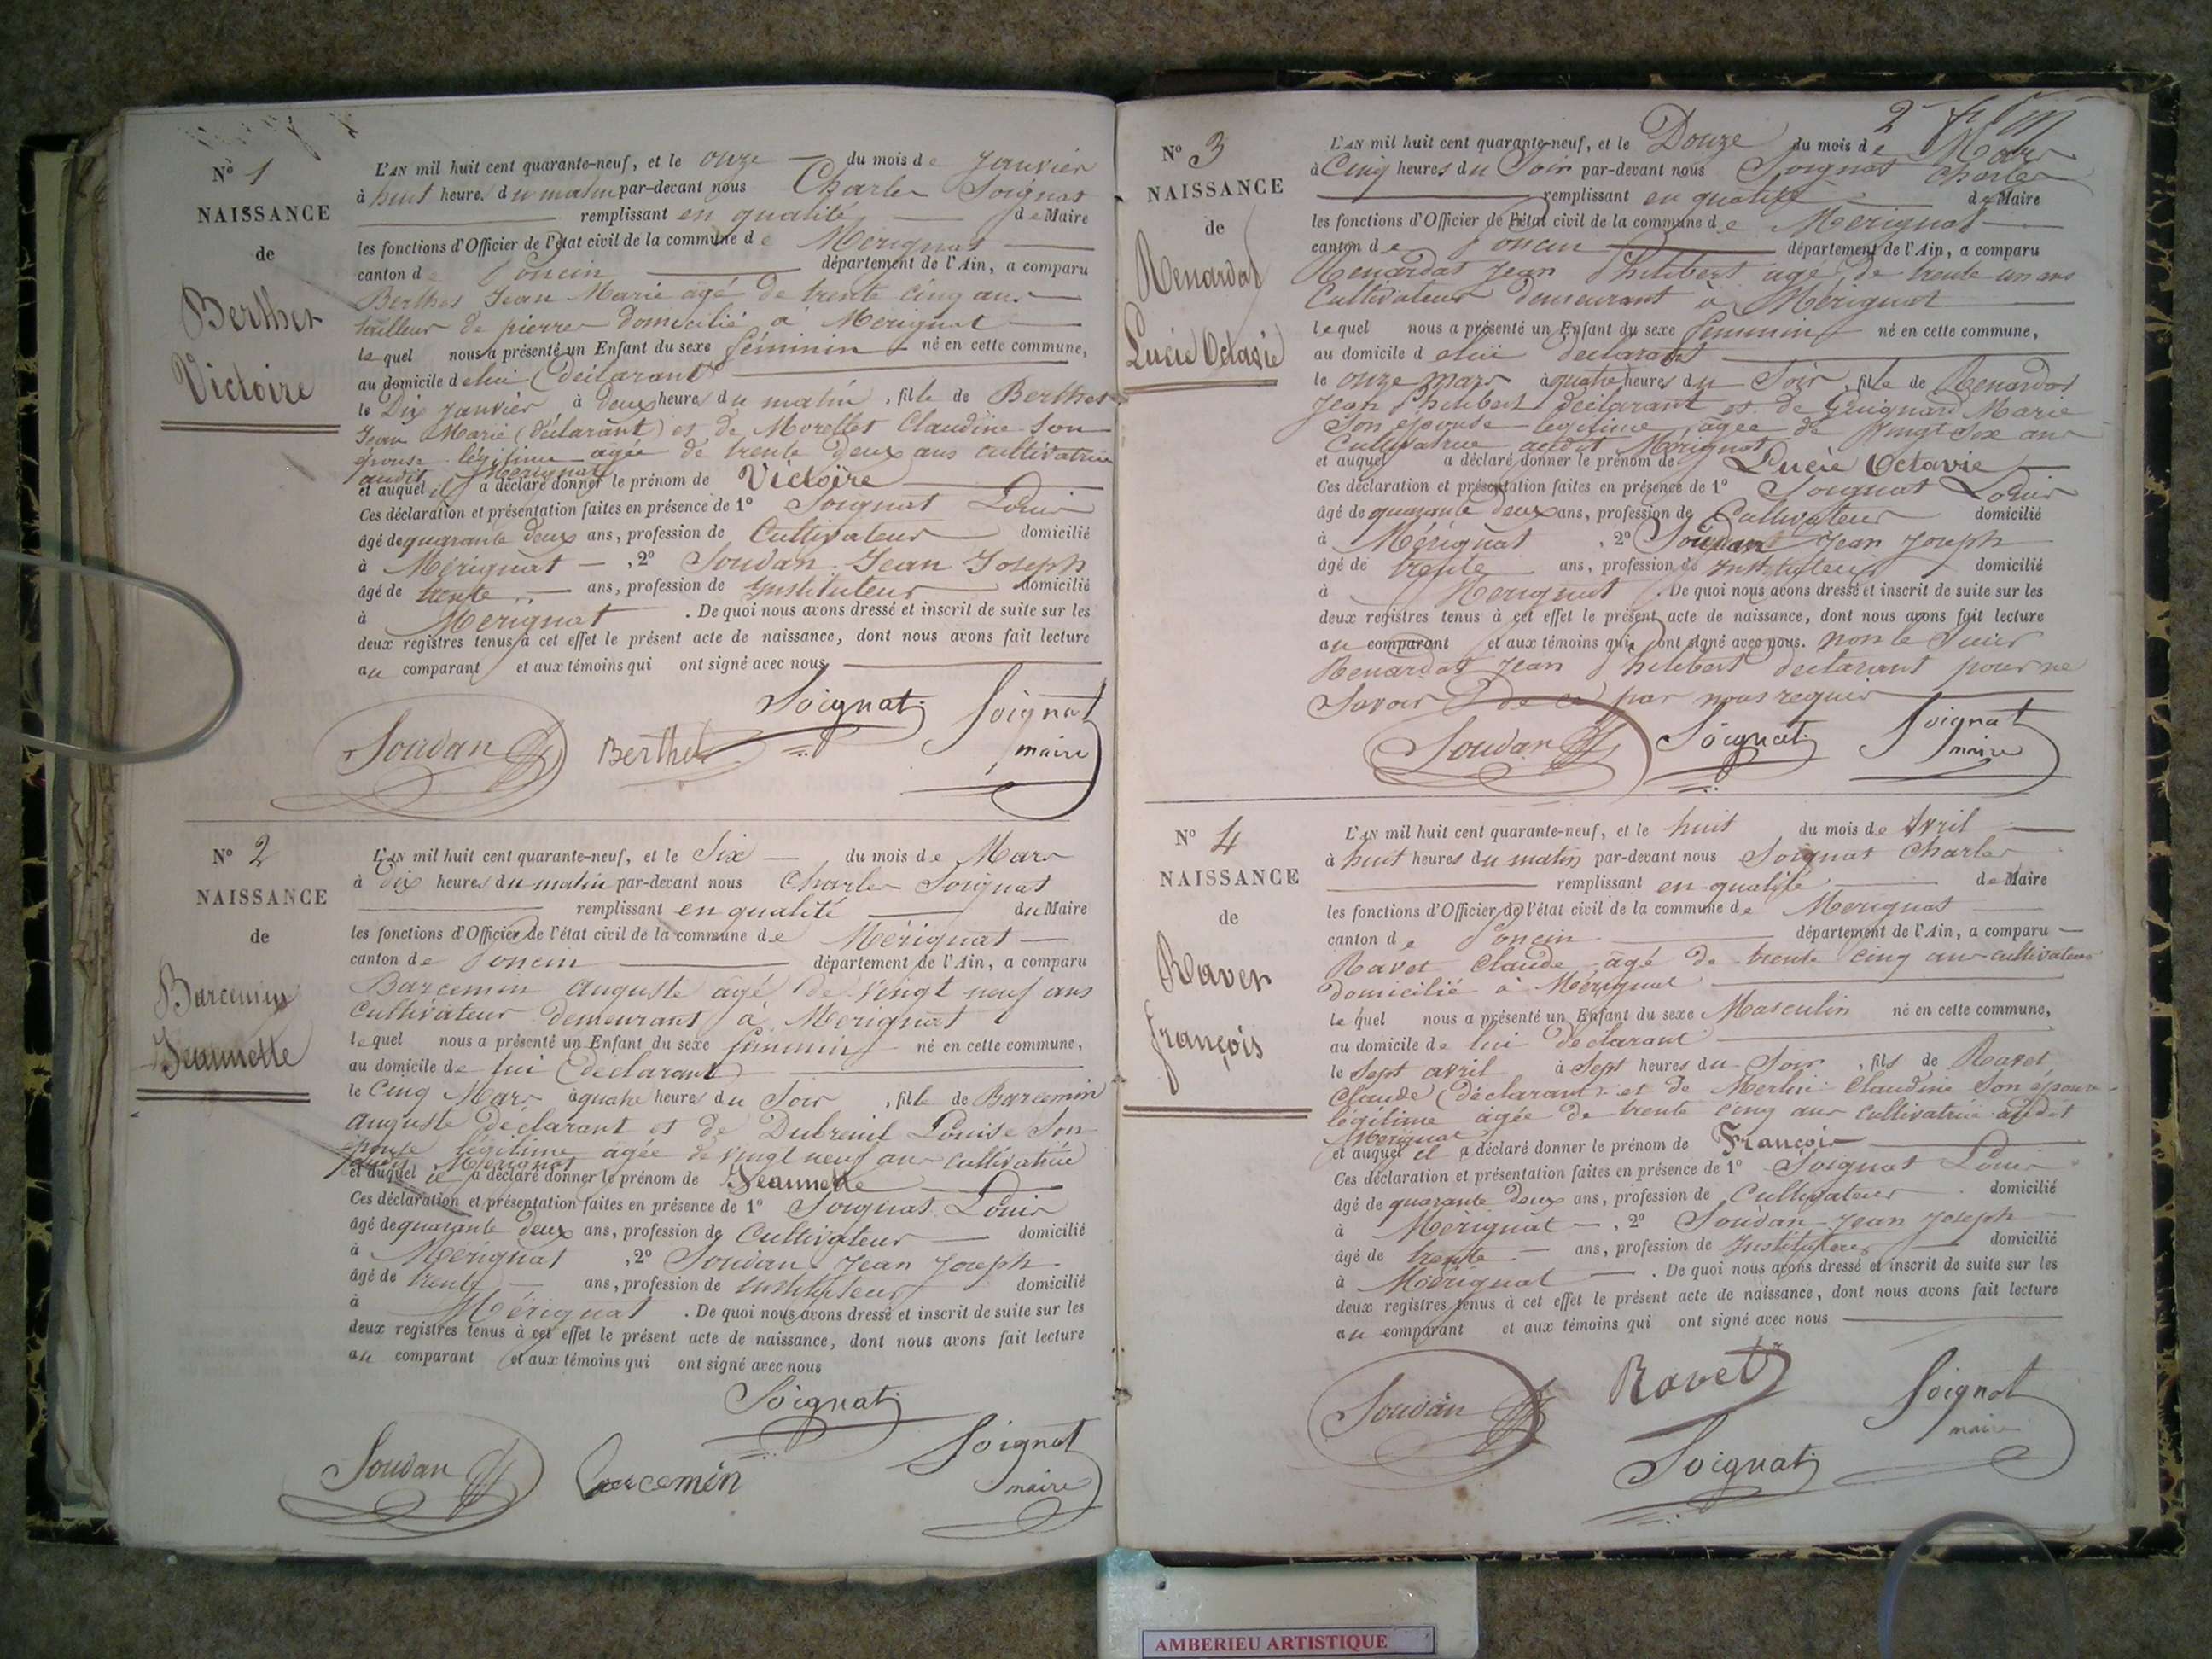 Nº 1
NAISSANCE
de
Berthet
Victoire
L'AN mil huit cent quarante-neuf, et le onze du mois de Janvier
à huit heures du matin par-devant nous Charles Soignat
remplissant en qualité de Maire
les fonctions d'Officier de l'état civil de la commune de Mérignat
canton de Poncin département de l'Ain, a comparu
Berthet Jean Marie âgé de trente cinq ans
tailleur de pierres domicilié à Mérignat
lequel nous a présenté un Enfant du sexe féminin né en cette commune,
au domicile de lui (déclarant)
le Dix Janvier à deux heures du matin, fille de Berthet
Jean Marie (déclarant) et de Morellet Claudine son
épouse légitime âgée de trente deux ans cultivatrice
audit Mérignat
et auquel il a déclaré donner le prénom de Victoire
Ces déclaration et présentation faites en présence de 1º Soignat Louis
âgé de quarante deux ans, profession de Cultivateur domicilié
à Mérignat, 2º Soudan Jean Joseph
âgé de trente ans, profession de Instituteur domicilié
à Mérignat. De quoi nous avons dressé et inscrit de suite sur les
deux registres tenus à cet effet le présent acte de naissance, dont nous avons fait lecture
au comparant et aux témoins qui ont signé avec nous
Soudan Berthet Soignat Soignat
maire
Nº 2
NAISSANCE
de
Barcemin
Jeannette
L'AN mil huit cent quarante-neuf, et le Six du mois de Mars
à Dix heures du matin par-devant nous Charles Soignat
remplissant en qualité du Maire
les fonctions d'Officier de l'état civil de la commune de Mérignat
canton de Poncin département de l'Ain, a comparu
Barcemin Auguste âgé de vingt neuf ans
cultivateur demeurant à Mérignat
lequel nous a présenté un Enfant du sexe féminin né en cette commune,
au domicile de lui (déclarant)
le Cinq Mars à quatre heures du Soir, fille de Barcemin
Auguste déclarant et de Dubreuil Louise Son
épouse légitime âgée de vingt neuf ans cultivatrice
audit Mérignat
et auquel il a déclaré donner le prénom de Jeannette
Ces déclaration et présentation faites en présence de 1º Soignat Louis
âgé de quarante deux ans, profession de Cultivateur domicilié
à Mérignat, 2º Soudan Jean Joseph
âgé de trente ans, profession de instituteur domicilié
à Mérignat. De quoi nous avons dressé et inscrit de suite sur les
deux registres tenus à cet effet le présent acte de naissance, dont nous avons fait lecture
au comparant et aux témoins qui ont signé avec nous
Soignat
Soudan Barcemin Soignat
maire
2
Nº 3
NAISSANCE
de
Renardat
Lucie Octavie
L'AN mil huit cent quarante-neuf, et le Douze du mois de Mars
à Cinq heures du Soir par-devant nous Soignat Charles
remplissant en qualité de Maire
les fonctions d'Officier de l'état civil de la commune de Mérignat
canton de Poncin département de l'Ain, a comparu
Renardat Jean Philibert âgé de trente un ans
Cultivateur demeurant à Mérignat
lequel nous a présenté un Enfant du sexe féminin né en cette commune,
au domicile de lui déclarant
le onze mars à quatre heures du Soir, fille de Renardat
Jean Philibert déclarant et de Guignard Marie
Son épouse légitime, âgée de vingt six ans
Cultivatrice audit Mérignat
et auquel a déclaré donner le prénom de Lucie Octavie
Ces déclaration et présentation faites en présence de 1º Soignat Louis
âgé de quarante deux ans, profession de Cultivateur domicilié
à Mérignat, 2º Soudan Jean Joseph
âgé de trente ans, profession de instituteur domicilié
à Mérignat. De quoi nous avons dressé et inscrit de suite sur les
deux registres tenus à cet effet le présent acte de naissance, dont nous avons fait lecture
au comparant et aux témoins qui ont signé avec nous. non le Sieur
Renardat Jean Philibert déclarant pour ne
Savoir de ce par nous requis
Soudan Soignat Soignat
maire
Nº 4
NAISSANCE
de
Ravet
françois
L'AN mil huit cent quarante-neuf, et le huit du mois de Avril
à huit heures du matin par-devant nous Soignat Charles
remplissant en qualité de Maire
les fonctions d'Officier de l'état civil de la commune de Mérignat
canton de Poncin département de l'Ain, a comparu
Ravet Claude âgé de trente cinq ans cultivateur
domicilié à Mérignat
lequel nous a présenté un Enfant du sexe Masculin né en cette commune,
au domicile de lui déclarant
le Sept avril à Sept heures du Soir, fils de Ravet
Claude (déclarant) et de Merlin Claudine Son épouse
légitime âgée de trente cinq ans cultivatrice audit
Mérignat
et auquel il a déclaré donner le prénom de François
Ces déclaration et présentation faites en présence de 1º Soignat Louis
âgé de quarante deux ans, profession de Cultivateur domicilié
à Mérignat, 2º Soudan Jean Joseph
âgé de trente ans, profession de Instituteur domicilié
à Mérignat. De quoi nous avons dressé et inscrit de suite sur les
deux registres tenus à cet effet le présent acte de naissance, dont nous avons fait lecture
au comparant et aux témoins qui ont signé avec nous
Soudan Ravet Soignat
maire
Soignat
AMBERIEU ARTISTIQUE